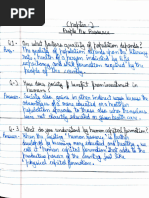 Chapter-2
People As Resource
Q-1 On what factors quality of population depends?
Ans- The quality of population depends upon the literacy
rate, health of a person indicated by life
expectancy and skill formation acquired by the
people of the country.
Q-2 How society benefit from investment in
Answer- Society also gains in other indirect ways because the
advantages of more educated or a healthier
population spreads to those also who themselves
were not directly educated or given
health care.
Q-3 What do you understand by human capital formation?
Answer- When the existing "human resource" is further developed
by becoming more educated and healthy, we
call it human capital formation that adds to the
productive power of the country just like
physical capital formation.